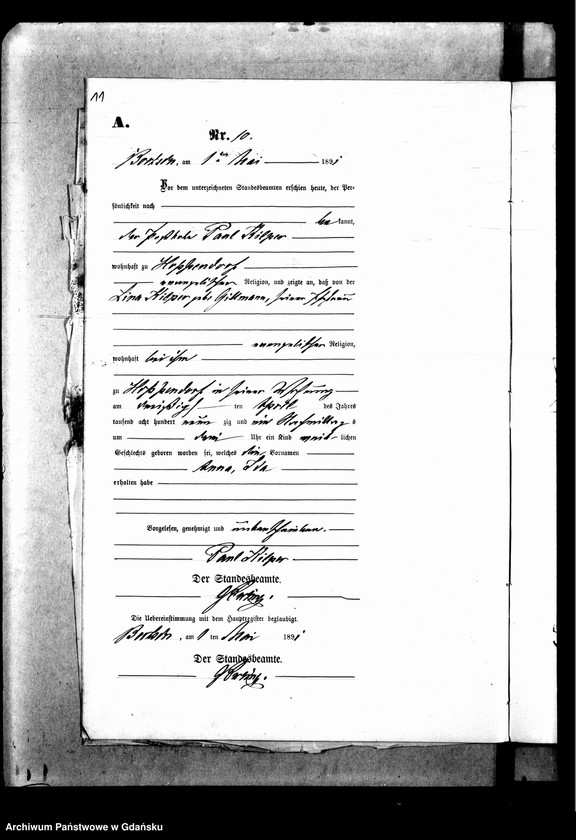 11
A.
Nr. 10.
am 1ten Mai 1891
Vor dem unterzeichneten Standesbeamten erschien heute, der Per-
sönlichkeit nach
bekannt,
der Paul
wohnhaft zu Hoppendorf
evangelischer Religion, und zeigte an, daß von der
Lina geb. seiner Ehefrau
evangelischer Religion,
wohnhaft bei ihm
zu Hoppendorf in seiner Wohnung
am dreißigst ten April des Jahres
tausend acht hundert neun zig und ein Nachmittag s
um drei Uhr ein Kind weib- lichen
Geschlechts geboren worden sei, welches die Vornamen
Anna, Ida
erhalten habe
Vorgelesen, genehmigt und unterschrieben.
Paul
Der Standesbeamte.
Die Uebereinstimmung mit dem Hauptregister beglaubigt.
am 1 ten Mai 1891
Der Standesbeamte.
Archiwum Państwowe w Gdańsku